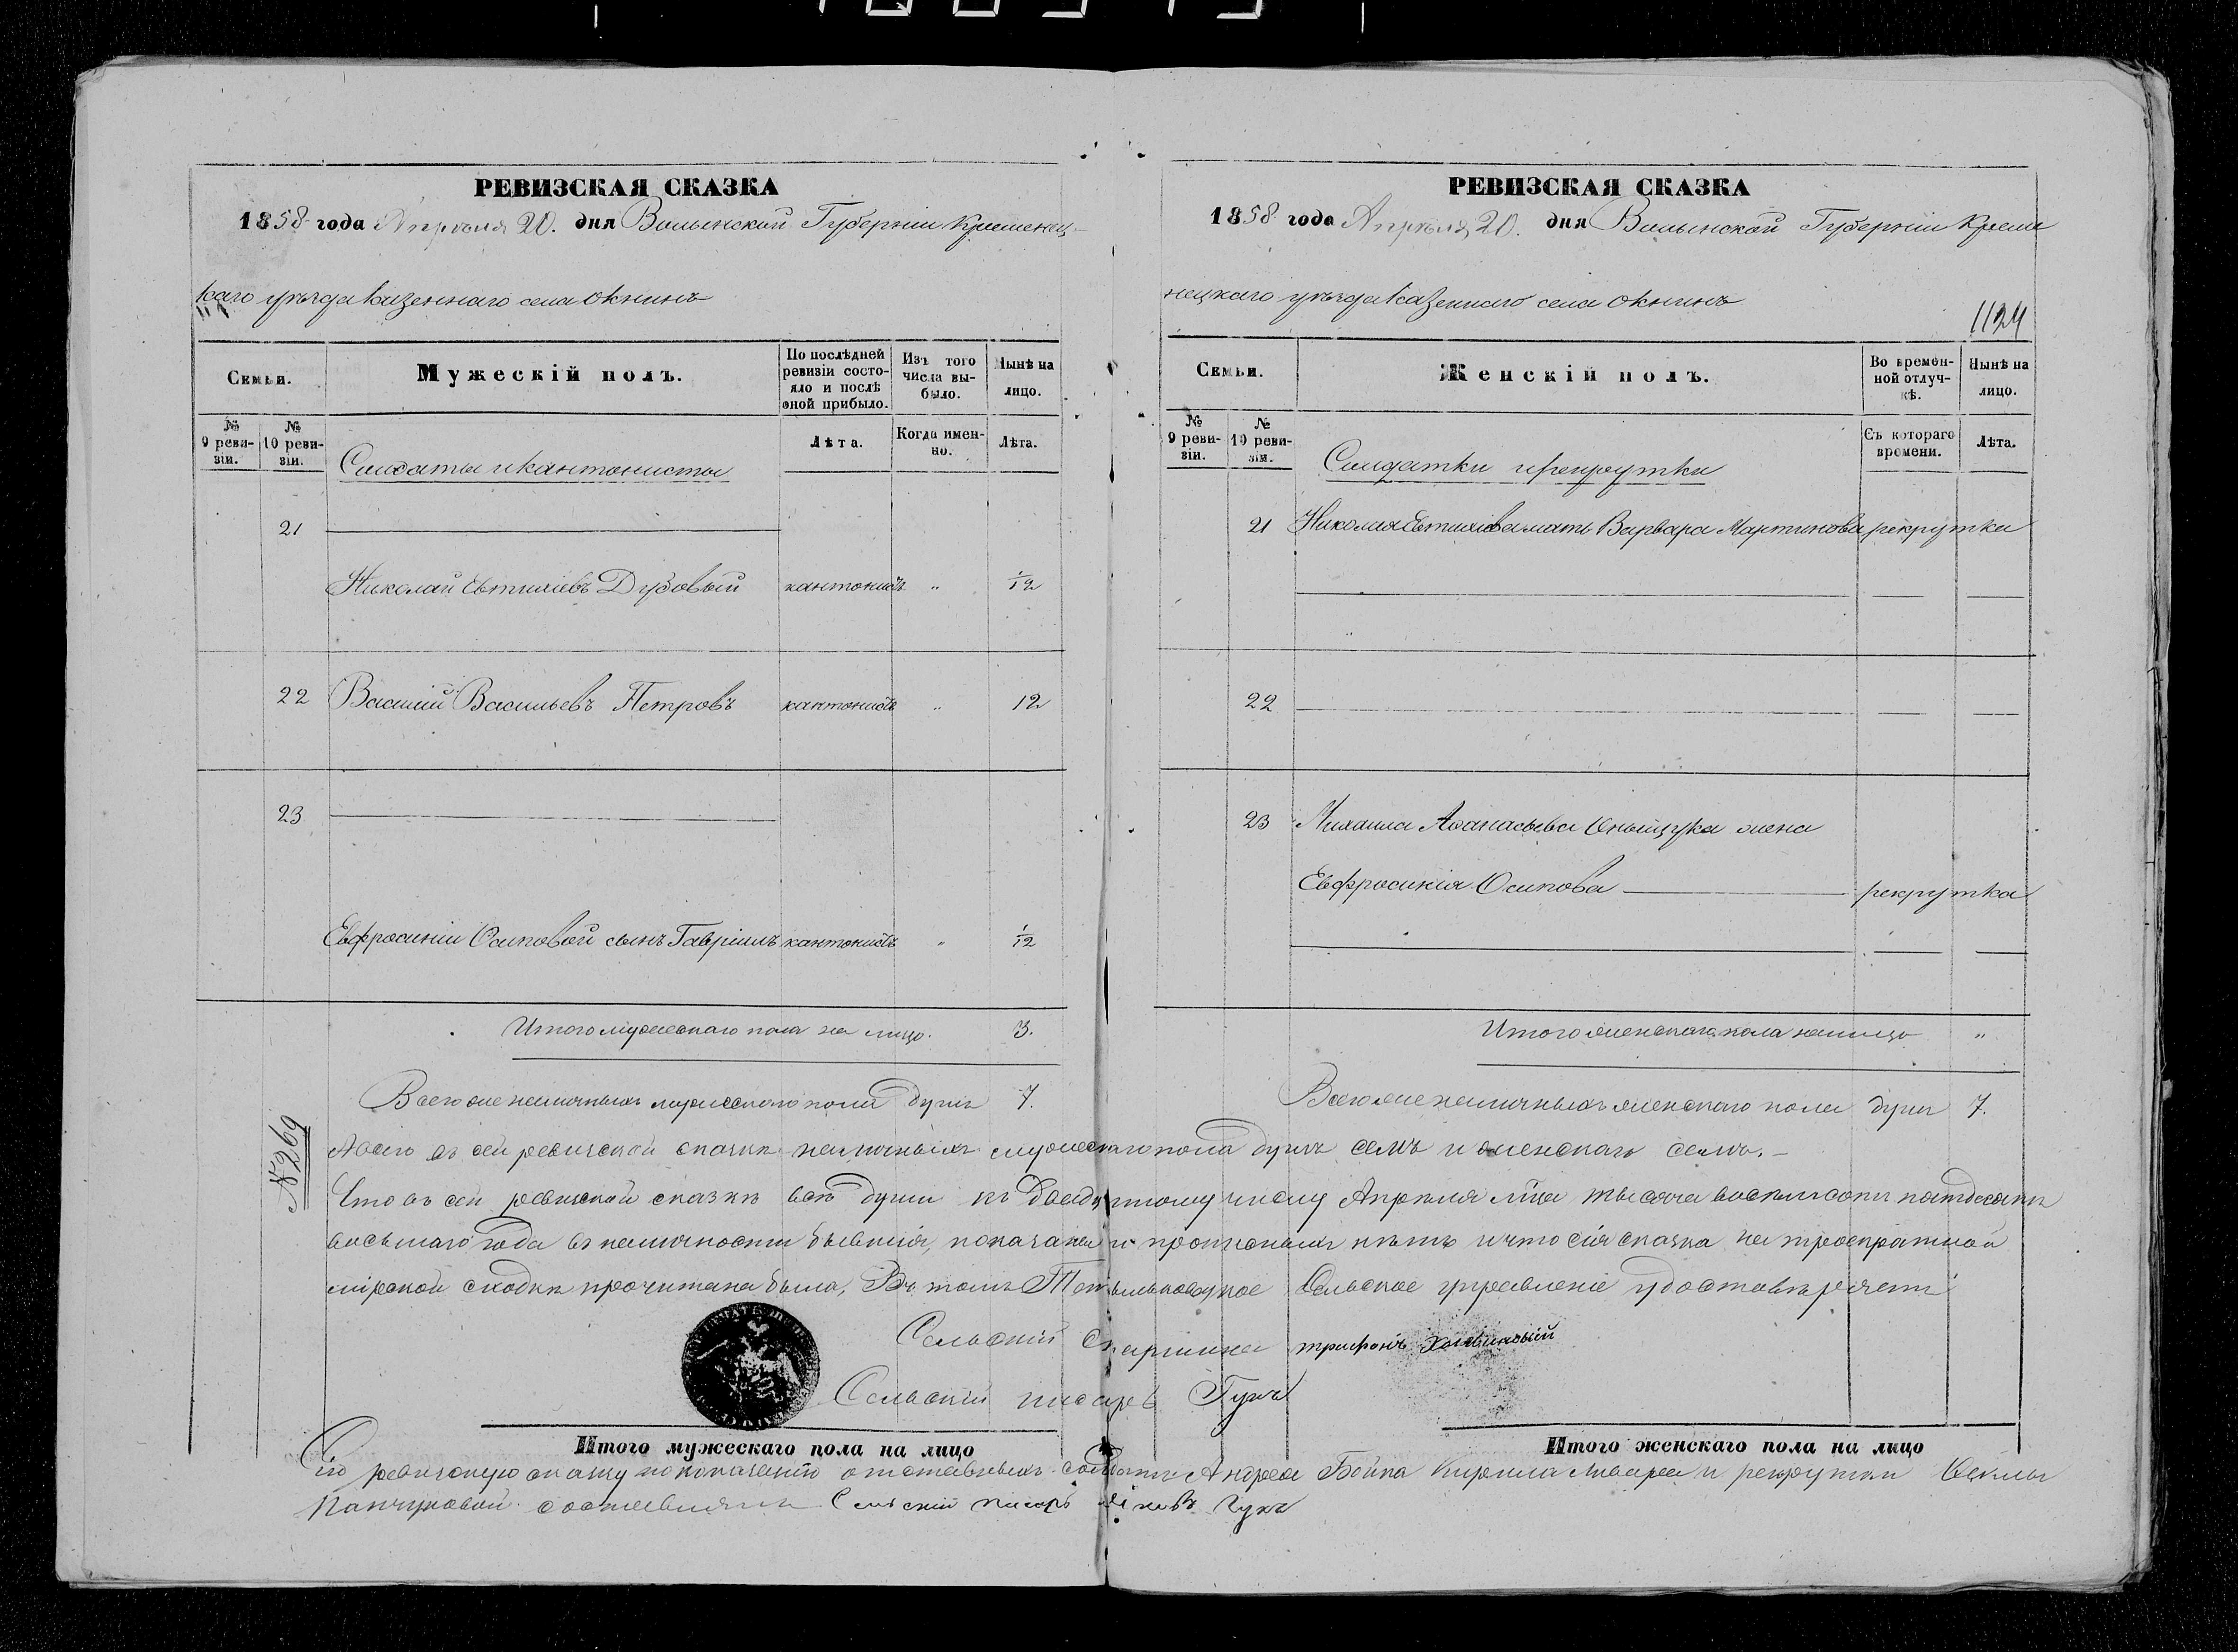 РЕВИЗСКАЯ СКАЗКА
1858 года Апрѣля 20. дня Волынской Губерніи Кременец-
каго уѣзда казеннаго села Окнинъ
Семьи.
Мужескій полъ.
По послѣдней ревизіи состояло и послѣ оной прибыло.
Изъ того числа выбыло.
Нынѣ на лицо.
№ 9 ревизіи.
№ 10 ревизіи.
Лѣта.
Когда именно.
Лѣта.
Солдаты и кантонисты
21
Николай Евтихіевъ Дубовый кантонистъ " 1/12
22 Василій Васильевъ Петровъ кантонистъ " 12
23
Евфросиніи Осиповой сынъ Гавріилъ кантонистъ " 1/12
Итого мужескаго пола на лицо. 3.
Всего же наличныхъ мужескаго пола душъ 7.
РЕВИЗСКАЯ СКАЗКА
1858 года Апрѣля 20. дня Волынской Губерніи Креме
нецкаго уѣзда казеннаго села Окнинъ
1124
Семьи.
Женскій полъ.
Во временной отлучкѣ.
Нынѣ на лицо.
№ 9 ревизіи.
№ 10 ревизіи.
Съ котораго времени.
Лѣта.
Солдатки и рекрутки
21 Николая Евтихіева мать Варвара Мартинова рекрутка
22
23 Михаила Аѳанасьева жена
Евфросинія Осипова рекрутка
Итого женскаго пола на лицо "
Всего же наличныхъ женскаго пола душъ 7.
№ 269
А всего въ сей ревизской сказкѣ наличныхъ мужескаго пола душъ семь и женскаго семь.
Что въ сей ревизской сказкѣ всѣ души къ двадцатому числу Апрѣля мца тысяча восемьсотъ пятдесятъ
восьмаго года въ наличности бывшія, показаны и прописныхъ нѣтъ и что сія сказка на троекратной
мірской сходкѣ прочитана была, Въ томъ Сельское управленіе удостовѣряетъ
Сельскій старшина Трифонъ
Сельскій писарь Гукъ
Итого мужескаго пола на лицо
Итого женскаго пола на лицо
Сію ревизскую сказку по показанію отставныхъ солдатъ Андрея Бойка Кирила и рекрутки
составлялъ Сельскій писарь Гукъ